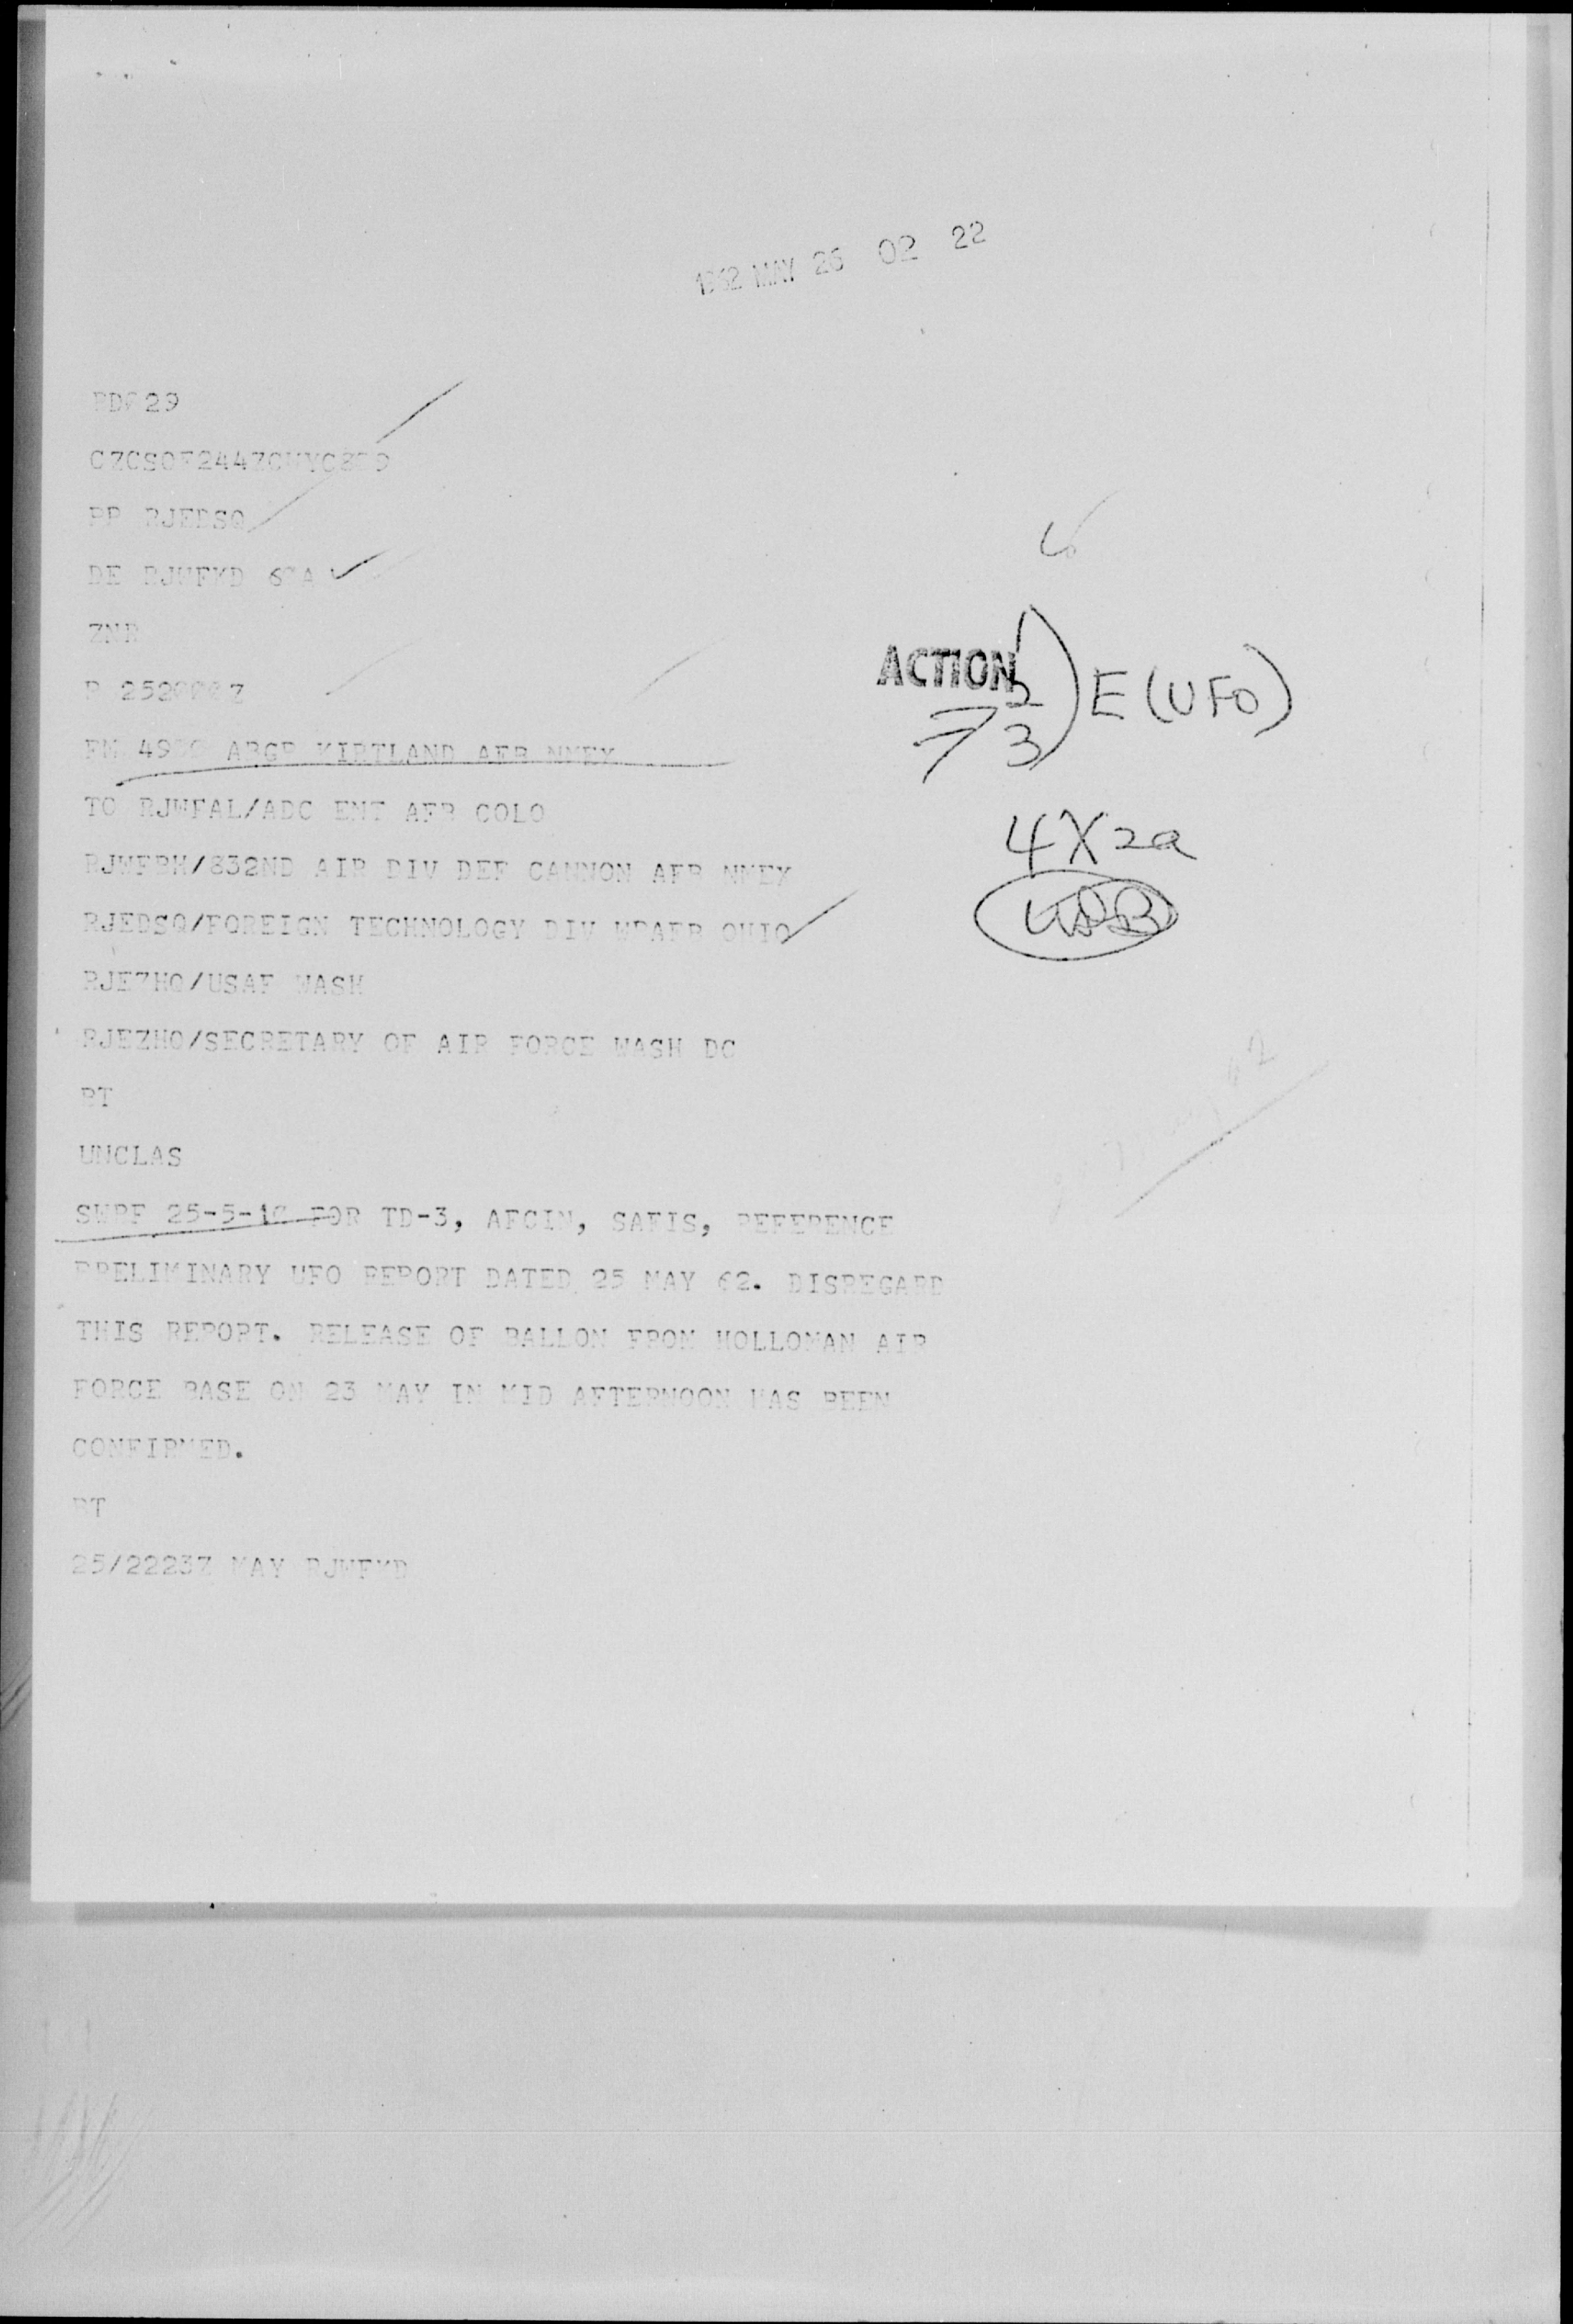 1962 MAY 26 02 22
29
PP RJEDSQ
DE RJWFKD
ZNR
ACTION
2
3
E (UFO)
FM ABGP KIRTLAND AFB NMEX
TO RJWFAL/ADC ENT AFB COLO
4X2a
RJWFBH/832ND AIR DIV DEF CANNON AFB NMEX
RJEDSQ/FOREIGN TECHNOLOGY DIV WPAFB OHIO
RJEZHQ/USAF WASH
RJEZHQ/SECRETARY OF AIR FORCE WASH DC
BT
UNCLAS
SWPF FOR TD-3, AFCIN, SAFIS, REFERENCE
PRELIMINARY UFO REPORT DATED 25 MAY 62. DISREGARD
THIS REPORT. RELEASE OF BALLON FROM HOLLOMAN AIR
FORCE BASE ON 23 MAY IN MID AFTERNOON HAS BEEN
CONFIRMED.
BT
25/2223Z MAY RJWFKD